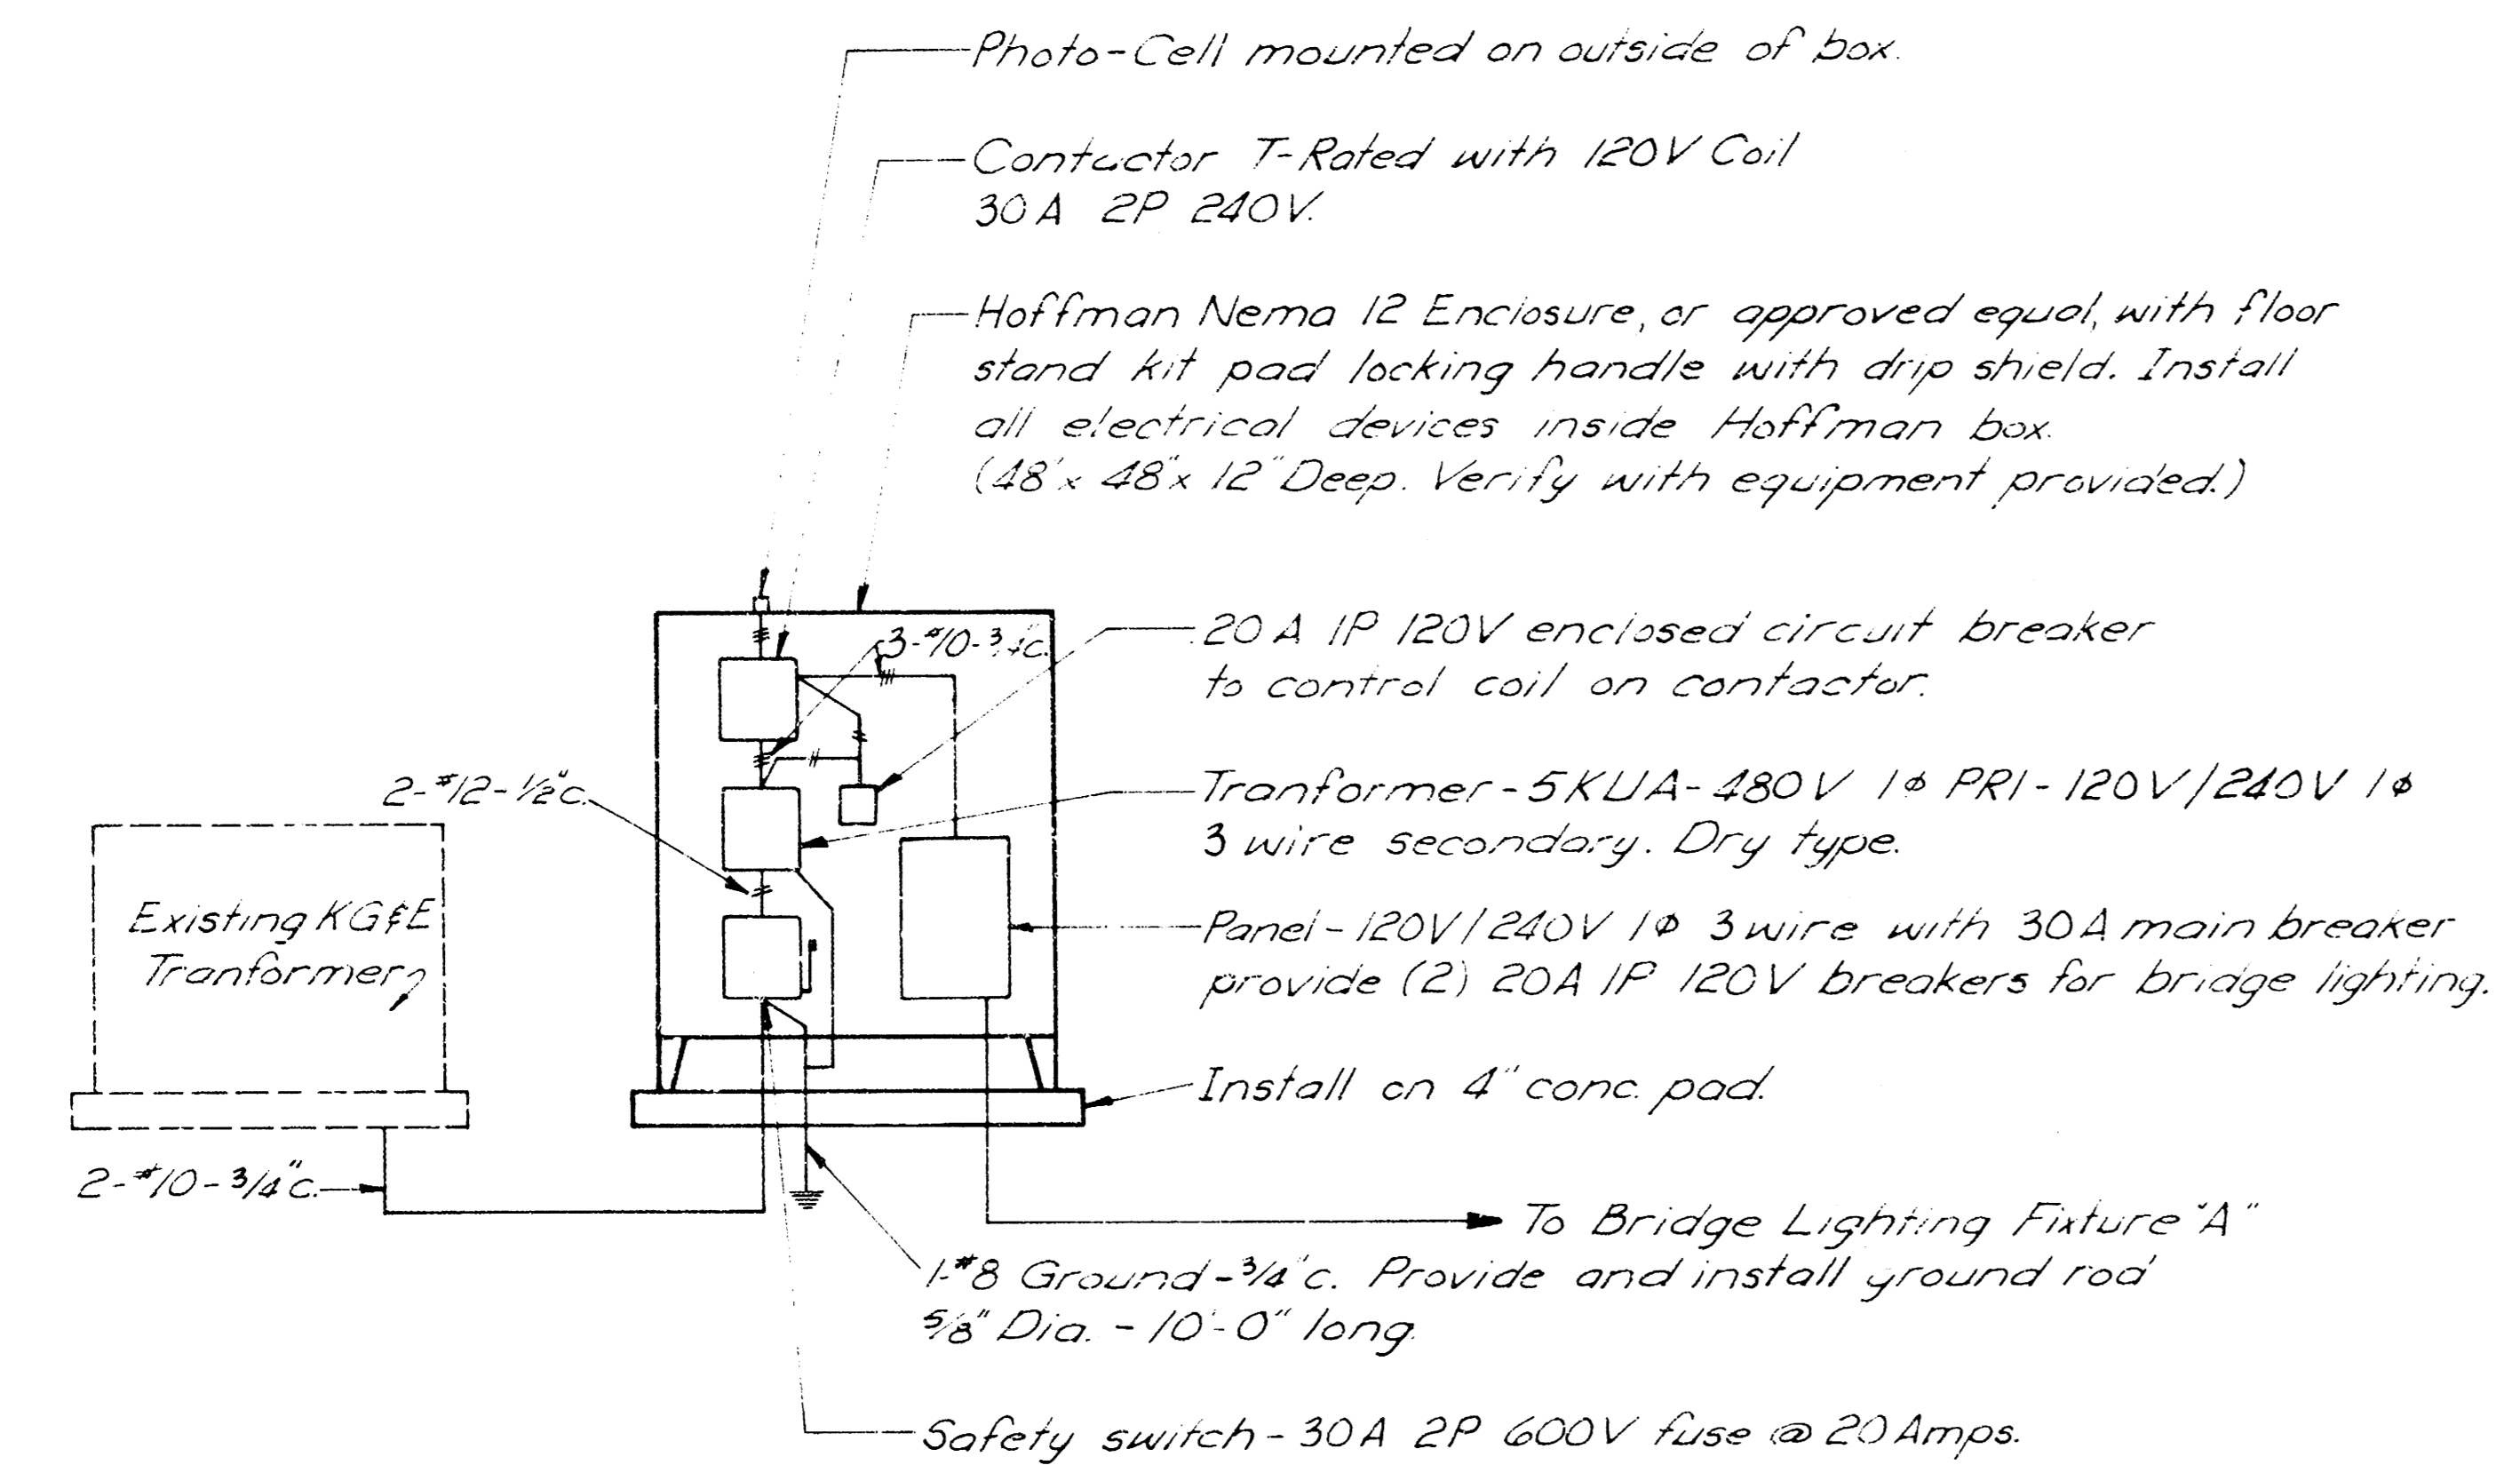 Photo-Cell mounted on outside of box.
Contactor T-Rated with 120V Coil
30A 2P 240V.
Hoffman Nema 12 Enclosure, or approved equal, with floor
stand kit pad locking handle with drip shield. Install
all electrical devices inside Hoffman box.
(48"x 48"x 12" Deep. Verify with equipment provided.)
3-#10-3/4"c.
20A 1P 120V enclosed circuit breaker
to control coil on contactor.
2-#12-1/2"c.
Tranformer-5KUA-480V 1ϕ PRI-120V/240V 1ϕ
3 wire secondary. Dry type.
Existing KG&E
Tranformer
Panel-120V/240V 1ϕ 3 wire with 30A main breaker
provide (2) 20A 1P 120V breakers for bridge lighting.
Install on 4" conc. pad.
2-#10-3/4"c.
To Bridge Lighting Fixture "A"
1-#8 Ground-3/4"c. Provide and install ground rod
5/8" Dia. - 10'-0" long.
Safety switch-30A 2P 600V fuse @ 20 Amps.